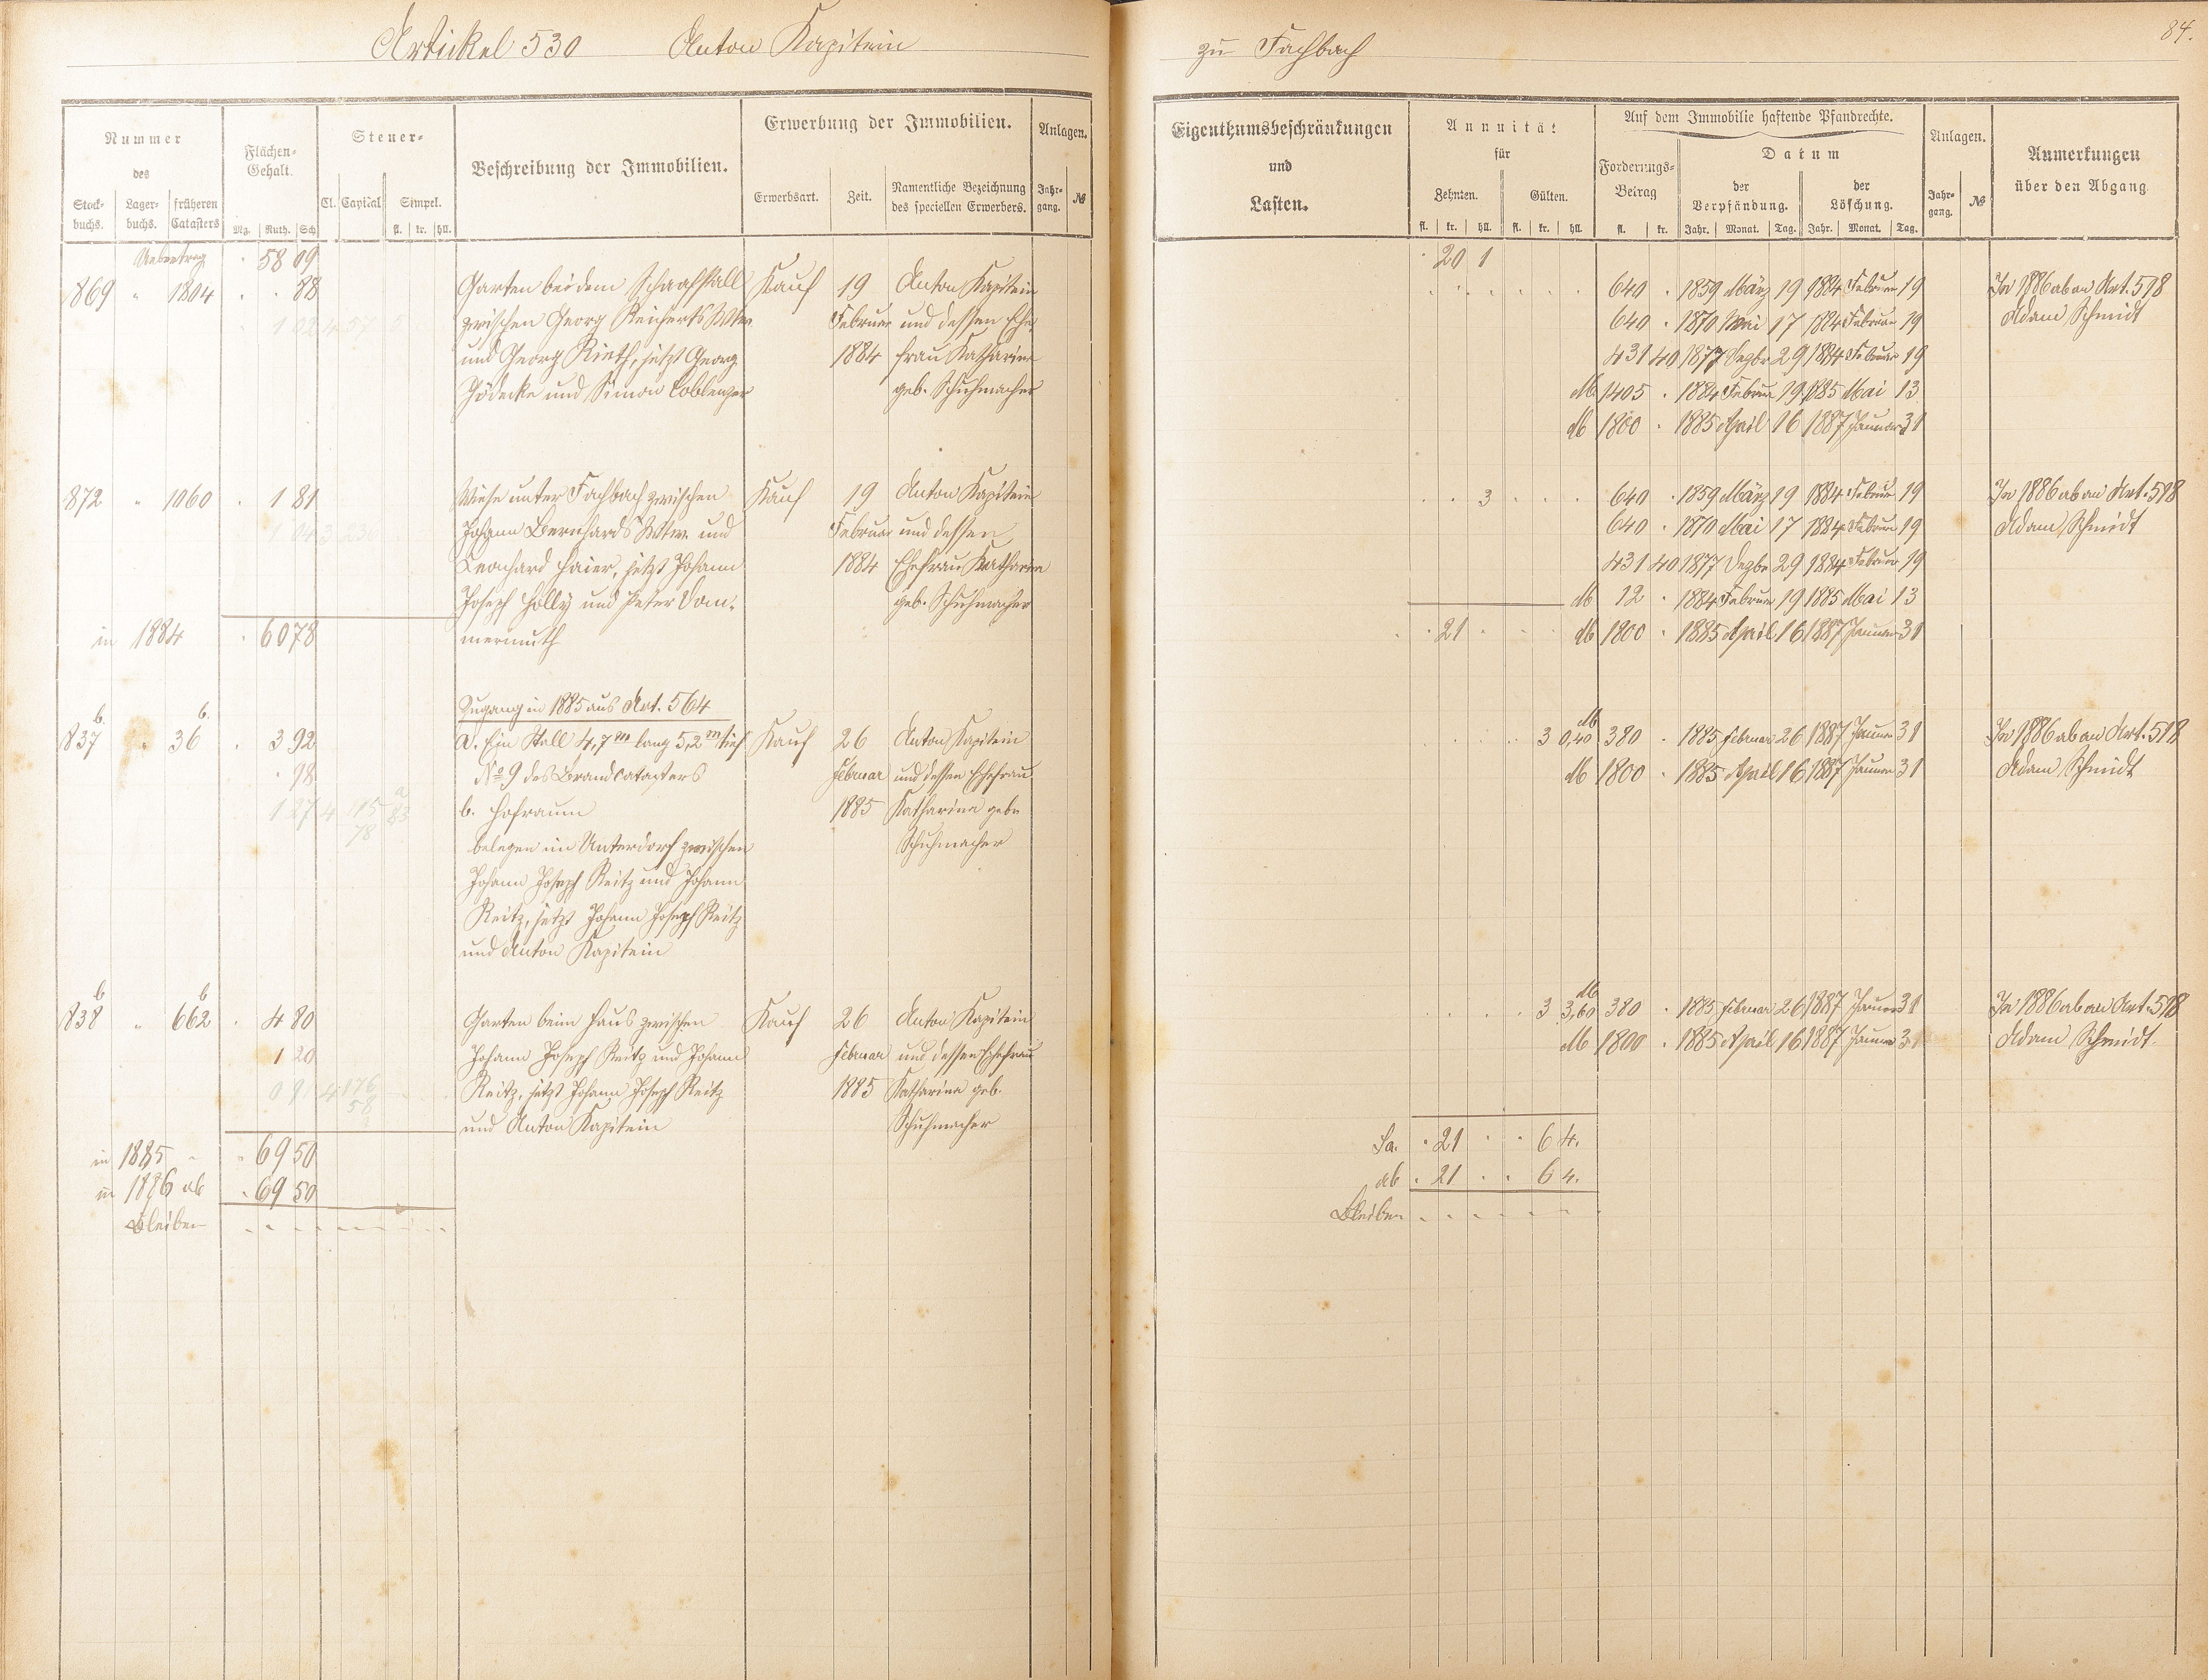 Artickel 530 Anton Kapitein zu Fachbach
84.
Nummer des
Stock-buchs. Lager-buchs. früheren Catasters
Flächen-Gehalt.
Mg. Ruth. Sch.
Steuer-
Cl. Capital Simpel.
fl. kr. hll.
Beschreibung der Immobilien.
Erwerbung der Immobilien.
Erwerbsart. Zeit. Namentliche Bezeichnung des speciellen Erwerbers.
Anlagen.
Jahr-gang. №
Eigenthumsbeschränkungen und Lasten.
Annuität für
Zehnten. Gülten.
fl. kr. hll. fl. kr. hll.
Auf dem Immobilie haftende Pfandrechte.
Forderungs-Betrag
fl. kr.
Datum
der Verpfändung. der Löschung.
Jahr. Monat. Tag. Jahr. Monat. Tag.
Anlagen.
Jahr-gang. №
Anmerkungen über den Abgang
Uebertrag 58 09
20 1
1869 " 1804 . . 88 Garten bei dem Schaafstall Kauf 19 Anton Kapitein
zwischen Georg Reicherts Wtw. Februar und dessen Ehe
und Georg Rieth, jetzt Georg 1884 frau Katharina
Jödecke und Simon Coblenzer geb. Schuhmacher
640 . 1859 März 19 1884 Februar 19 In 1886 ab an Art. 598
640 . 1870 Mai 17 1884 Februar 19 Adam Schmidt
431 40 1877 Dezbr 29 1884 Februar 19
M 1405 . 1884 Februar 19 1885 Mai 13
M 1800 . 1885 April 16 1887 Januar 31
1872 " 1060 . 1 81 Wiese unter Fachbach zwischen Kauf 19 Anton Kapitein
1 04 3 230
Johann Bernhards Wtw. und Februar und dessen
Leonhard Haier, jetzt Johann 1884 Ehefrau Katharina
Joseph Holly und Peter Dom- geb. Schuhmacher
in 1884 . 60 78 mermuth
. . 3 . . . 640 . 1859 März 19 1884 Februar 19 In 1886 ab an Art. 598
640 . 1870 Mai 17 1884 Februar 19 Adam Schmidt
431 40 1877 Dezbr 29 1884 Februar 19
M 12 . 1884 Februar 19 1885 Mai 13
. 21 . . . M 1800 . 1885 April 16 1887 Januar 31
Zugang in 1885 aus Art. 564
1837 b. " 36 b. . 3 92 a. Ein Stall 4,7 m lang 5,2 m tief Kauf 26 Anton Kapitein
. 98 № 9 des Brandcatasters Februar und dessen Ehefrau
1 27 4 b. Hofraum 1885 Katharina gebr
78
belegen im Unterdorf zwischen Schuhmacher
Johann Joseph Reitz und Johann
Reitz, jetzt Johann Joseph Reitz
und Anton Kapitein
3 0,40 M 380 . 1885 Februar 26 1887 Januar 31 In 1886 ab an Art. 598
M 1800 . 1885 April 16 1887 Januar 31 Adam Schmidt
1838 b " 662 b . 4 80 Garten beim Haus zwischen Kauf 26 Anton Kapitein
1 20 Johann Joseph Reitz und Johann Februar und dessen Ehefrau
Reitz, jetzt Johann Joseph Reitz 1885 Katharina geb.
und Anton Kapitein Schuhmacher
3 3,60 M 380 . 1885 Februar 26 1887 Januar 31 In 1886 ab an Art. 598
M 1800 . 1885 April 16 1887 Januar 31 Adam Schmidt.
in 1885 " . 69 50
in 1886 ab . 69 50
Bleiben
Sa. . 21 . . 6 4.
ab . 21 . . 6 4.
Bleiben